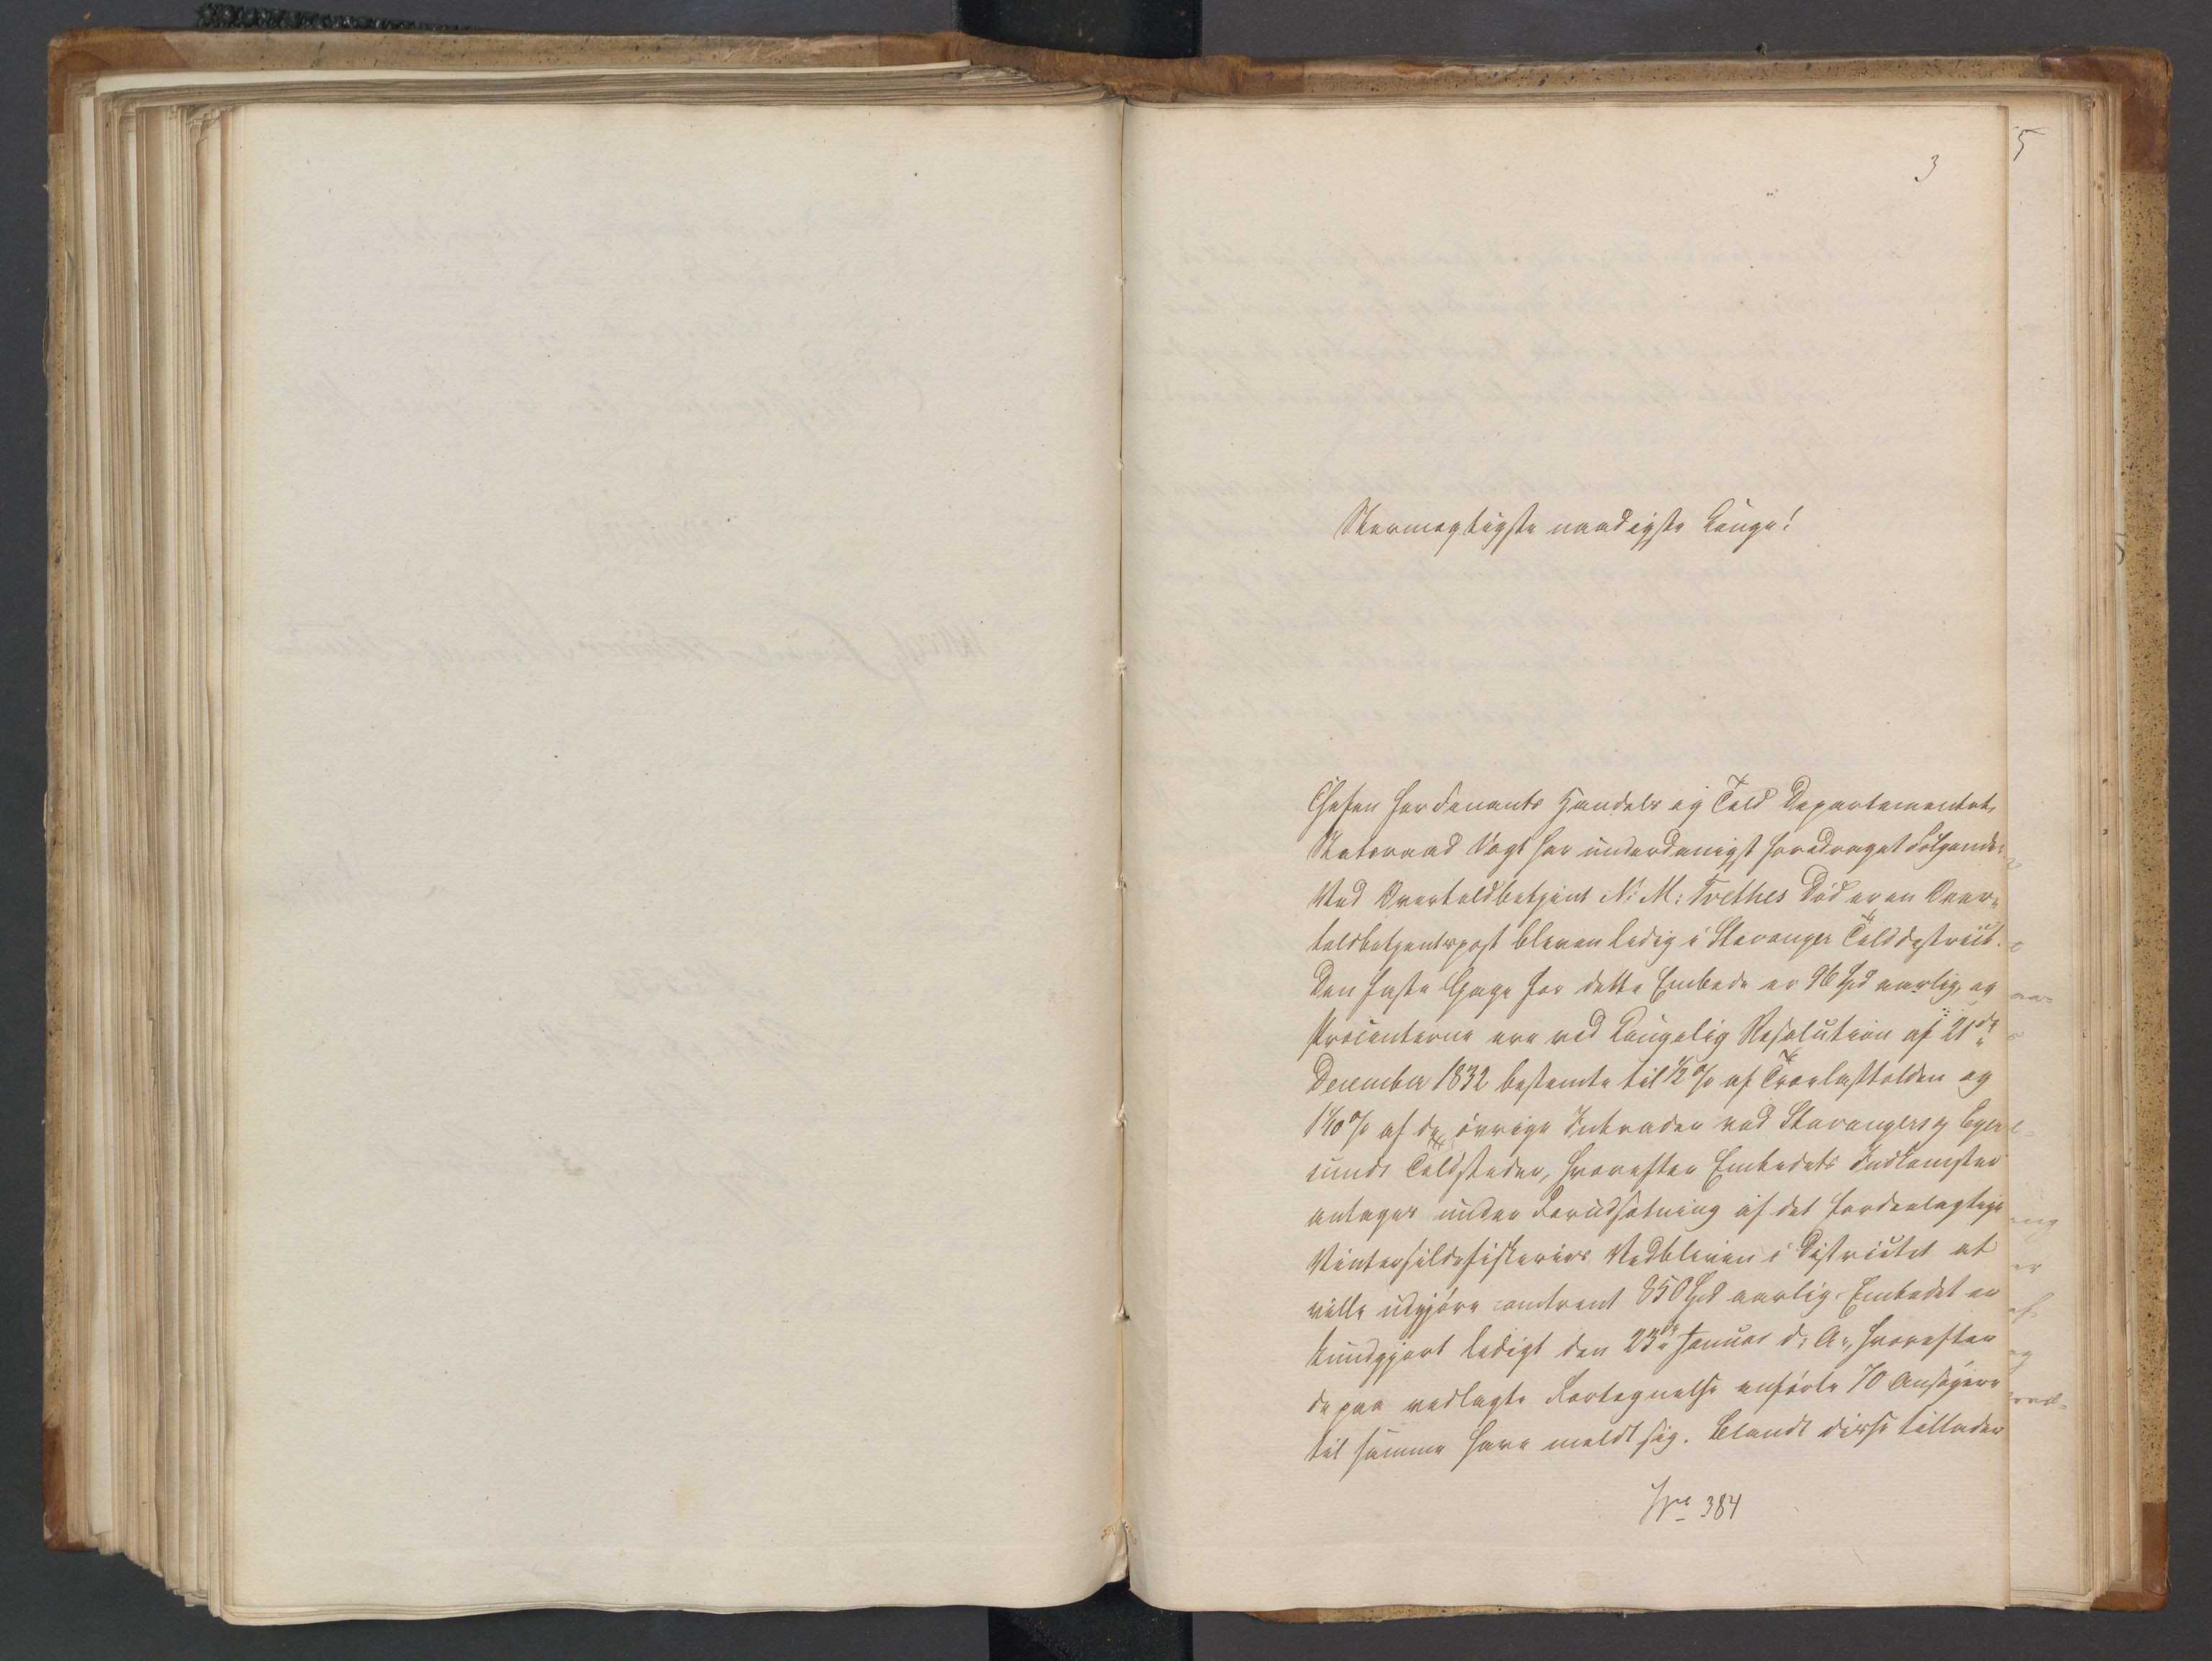 5
3
Stormægtigste naadigste Konge!
Chefen for Finants Handels og Told Departementet,
Statsraad Vogt har underdanigst foredraget Følgende:
Ved Overtoldbetjent N: M: Trethes Død er en Over-
toldbetjentspost bleven ledig i Stavanger Tolddistrict.
Den faste Gage for dette Embede er 96 Spd aarlig, og
Procenterne ere ved Kongelig Resolution af 21de
December 1832 bestemte til ½ % af Trælasttolden og
1 1/10 % af de øvrige Intrader ved Stavangers og Eger-
sunds Toldsteder, hvorefter Embedets Indkomster
antages under Forudsætning af det fordeelagtige
Vintersildefiskeries Vedbliven i Districtet at
ville udgjøre omtrent 850 Spd aarlig. Embedet er
kundgjort ledigt den 23de Januar d: A:, hvorefter
de paa vedlagte Fortegnelse anførte 70 Ansøgere
til samme have meldt sig. Blandt disse tillader
No 384